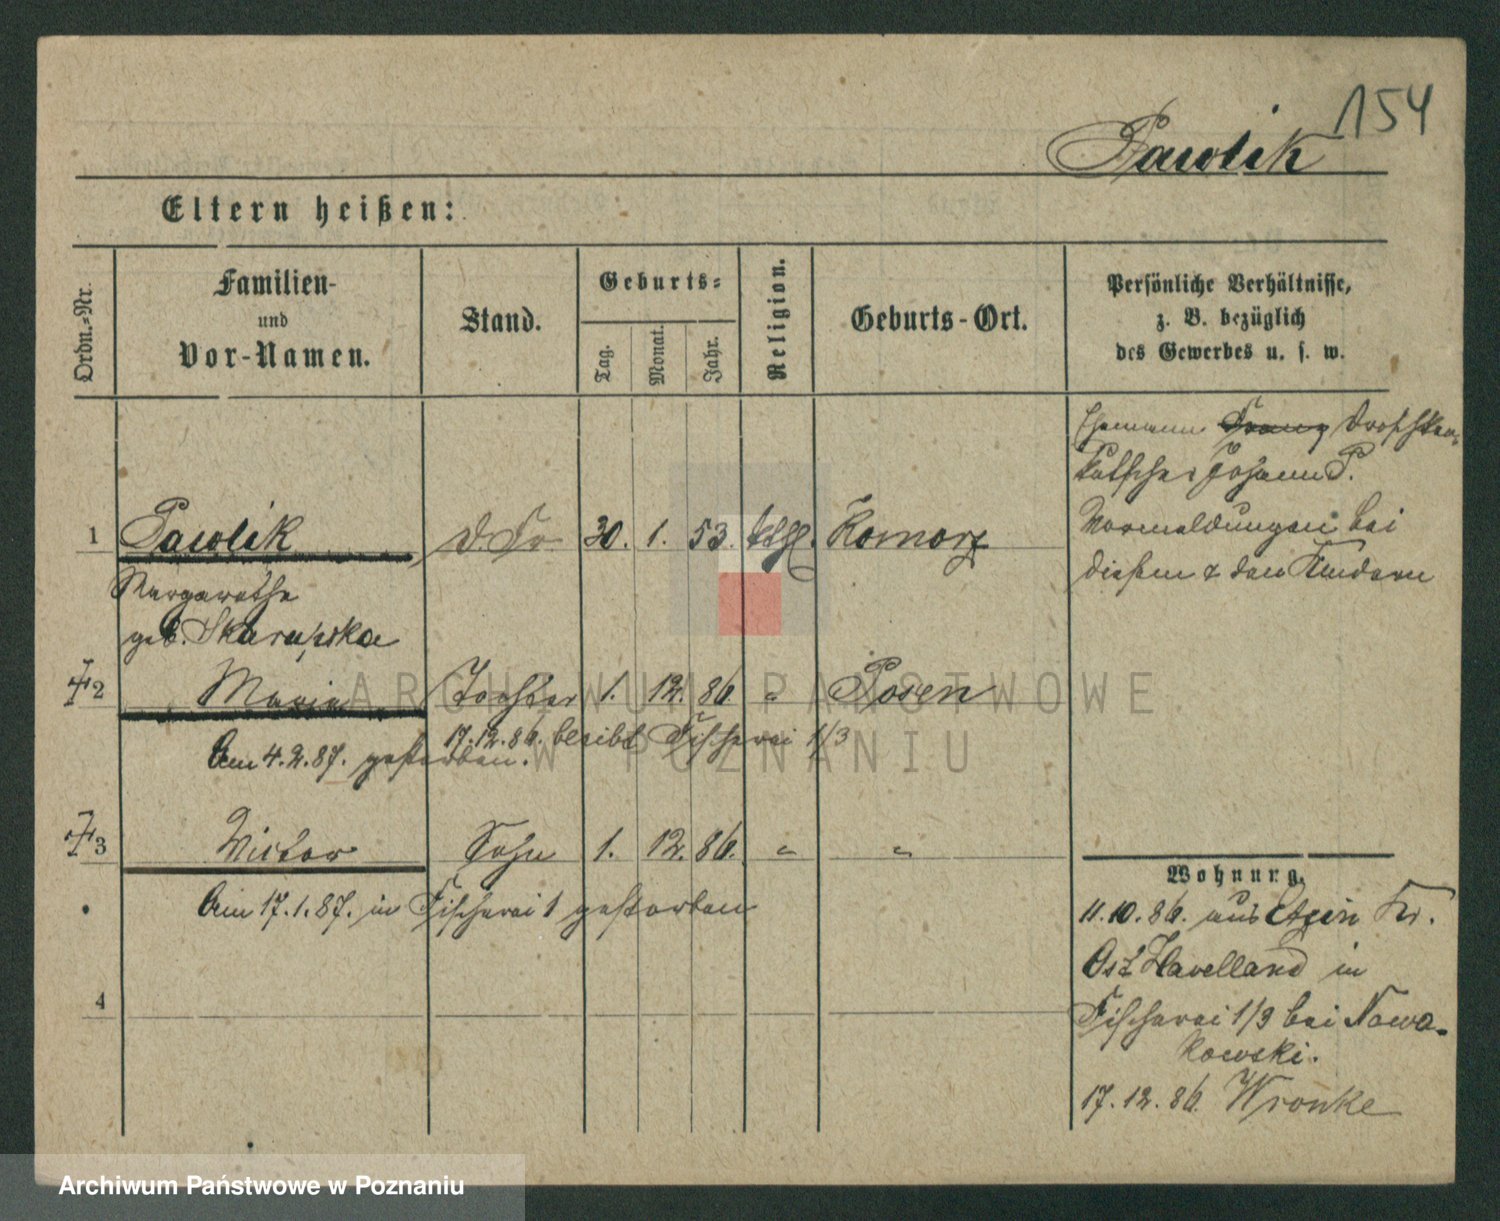 154
Pawlik
Eltern heißen:
Ordn.-Nr.
Familien-
und
Vor-Namen.
Stand.
Geburts-
Tag.
Monat.
Jahr.
Religion.
Geburts-Ort.
Persönliche Verhältnisse,
z. B. bezüglich
des Gewerbes u. s. w.
Ehemann Franz Droschken-
kutscher Johann P.
Vormeldungen bei
diesem & den Kindern
1 Pawlik d Fr 30. 1. 53. kthl. Komorz
Margarethe
geb. Skarupska
2 Maria Tochter 1. 12. 86. " Posen
17.12.86. bleibt Fischerei 1/3
Am 4.2.87. gestorben.
3 Victor Sohn 1. 12. 86. " "
Am 17.1.87. in Fischerei 1 gestorben
4
Wohnung.
11.10.86. aus Etzin Kr.
Ost Havelland in
Fischerei 1/3 bei Nowa-
kowski.
17.12.86. Wronke
ARCHIWUM PAŃSTWOWE
W POZNANIU
Archiwum Państwowe w Poznaniu